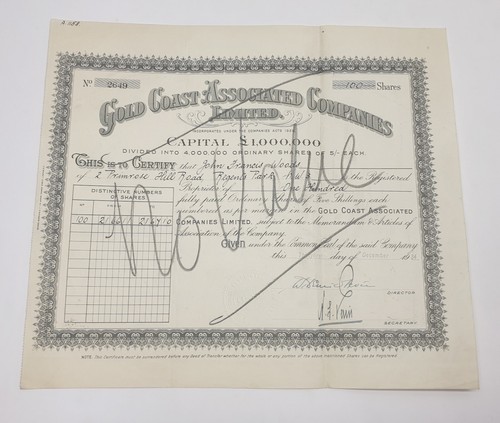 No 2649
100 Shares
GOLD COAST ASSOCIATED COMPANIES
LIMITED.
INCORPORATED UNDER THE COMPANIES ACTS
CAPITAL £1,000,000
DIVIDED INTO 4,000,000 ORDINARY SHARES OF 5/- EACH.
THIS IS TO CERTIFY that John Francis Woods
of 2 Primrose Hill Road Regents Park N.W.3 is the Registered
Proprietor of One Hundred
fully paid Ordinary Shares of Five Shillings each
numbered as per margin in the GOLD COAST ASSOCIATED
COMPANIES LIMITED, subject to the Memorandum & Articles of
Association of the Company.
DISTINCTIVE NUMBERS
OF SHARES
100
Given under the Common Seal of the said Company
day of December
DIRECTOR
SECRETARY
NOTE. This Certificate must be surrendered before any Deed of Transfer whether for the whole or any portion of the above mentioned Shares can be Registered.
No value